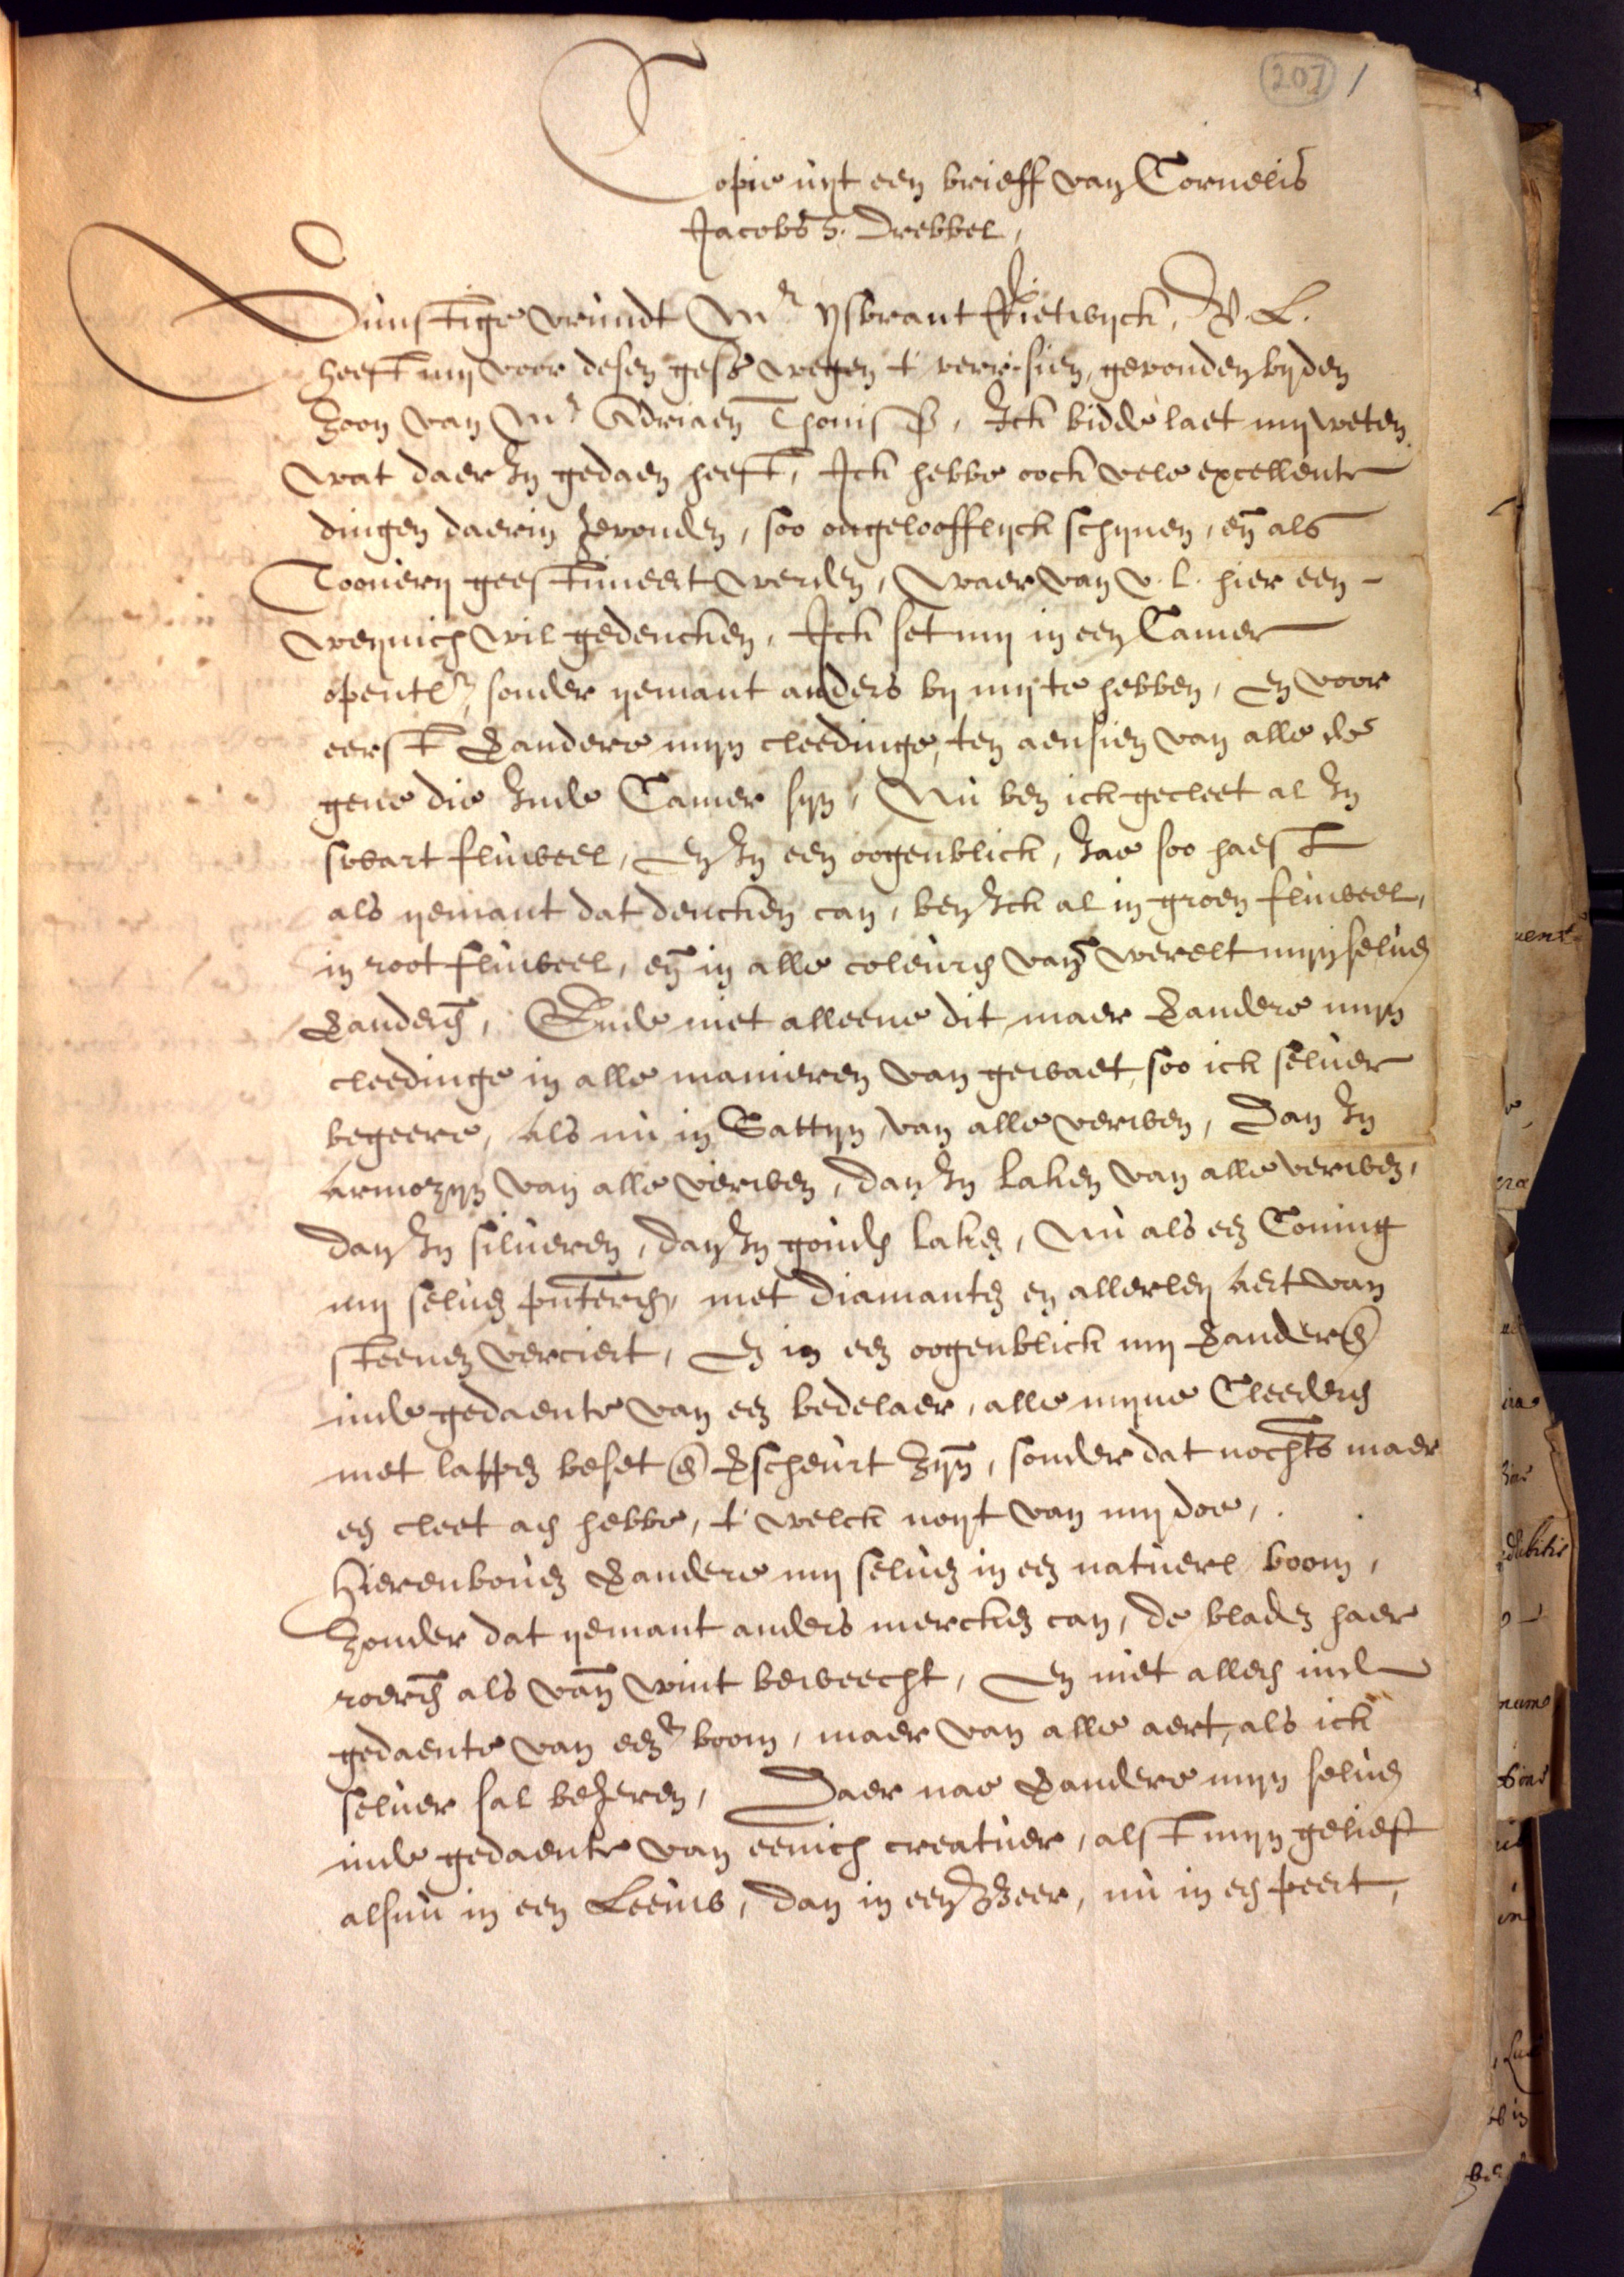 207 1
Copie uijt een brieff van Cornelis
Jacobs z. Drebbel,
Gunstige vrundt Mr ysbrant Rietwijck, V. L.
heeft mij voor desen ges. wegen t verre sien, gevonden bij den
zoon van Mr Adriaen Thonisz, Ick bidde laet mij weten
wat daer In gedaen heeft, Ick hebbe oock vele excellente
dingen daerin gevonden, soo ongelooffelyck schijnen, en als
Tooverij geestimeert werden, waer van v. l. hier een
weynich wil gedencken, Ick set mij in een Camer
opentlr, sonder yemant anders bij mij te hebben, En voor
eerst Vandere mijn cleedinge, ten aensien van alle de
gene die Inde Camer sijn, Nu ben ick gecleet al In
swart fluweel, En In een oogenblick, Jae soo haest
als yemant dat dencken can, ben Ick al in groen fluweel,
in root fluweel, en in alle coleuren van werelt mijn selven
Vanderen, Ende niet alleene dit, maer Vandere mijn
cleedinge in alle manieren van gewaet, soo ick selver
begeere, Als nu in Sattijn, van alle verwen, Dan In
Armozijn van alle verwen, dan In laken van alle verwen,
dan In silveren, dan In gouden laken, Nu als een Coning
mij selven pnteren, met Diamanten en allerley Aert van
steenen verciert, En in een oogenblick mij Vanderen
inde gedaente van een bedelaer, alle mijne Cleederen
met lappen beset en Vscheurt zijn, sonder dat nochts maer
een cleet aen hebbe, t' welck noyt van mij doe,
Hierenboven Vandere mij selven in een natuerl boom,
Zonder dat yemant anders mercken can, de bladen haer
roeren als van wint beweecht, En niet alleen inde
gedaente van een boom, maer van alle aert, als ick
selver sal begeren, Daer nae Vandere mijn selven
inde gedaente van eenich creatuer, alst mijn gelieft
alsnu in een Leeuw, dan in een Beer, nu in een peert,